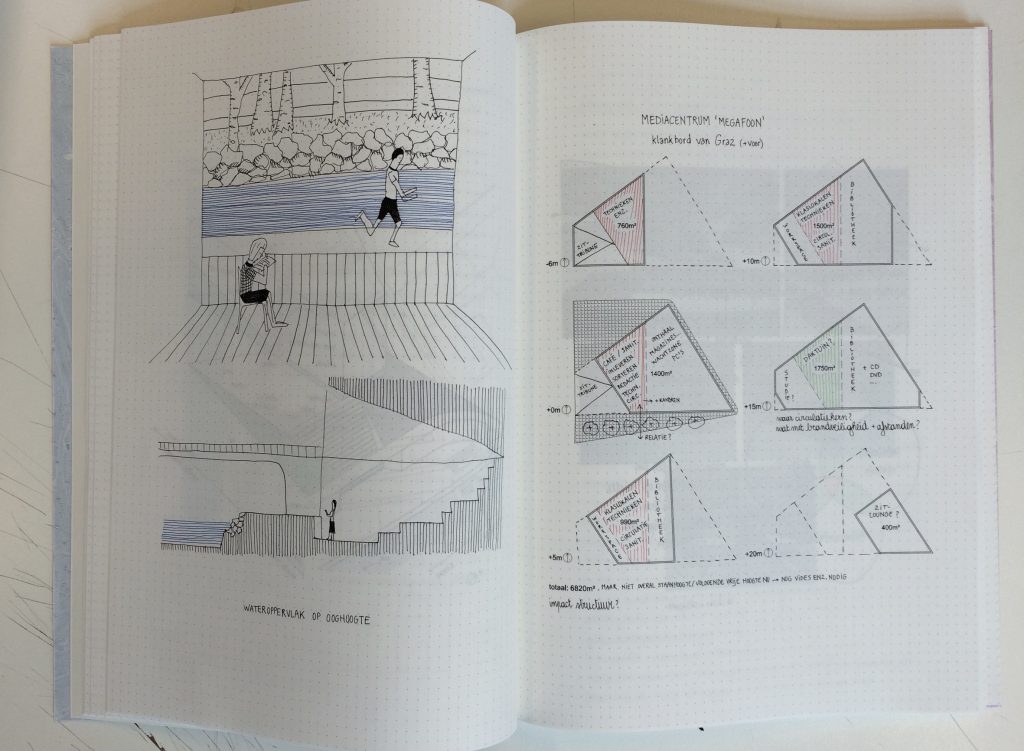 WATEROPPERVLAK OP OOGHOOGTE
MEDIACENTRUM 'MEGAFOON'
klankbord van Graz (+voor)
TECHNIEKEN
ENZ.
760m²
ZIT-
TRIBUNE
-6m
KLASLOKALEN
TECHNIEKEN
1500m²
CIRCUL.
SANIT.
BIBLIOTHEEK
+10m
CAFÉ / SANIT.
INLEVEREN
SORTEREN
REDACTIE
TECHN.
CIRC.
ZIT-
TRIBUNE
ONTHAAL
MAGAZINES...
WACHTZONE
PC'S
1400m²
+ KANTOREN
+0m
RELATIE?
DAKTUIN?
1750m²
BIBLIOTHEEK
+ CD
DVD
....
STUDIE?
+15m
waar circulatiekern?
wat met brandveiligheid + afstanden?
KLASLOKALEN
TECHNIEKEN
990m²
CIRCULATIE
SANIT.
BIBLIOTHEEK
+5m
ZIT-
LOUNGE?
400m²
+20m
totaal: 6820m², MAAR NIET OVERAL STAHOOGTE/VOLDOENDE VRIJE HOOGTE NU → NOG VIDES ENZ. NODIG
impact structuur?